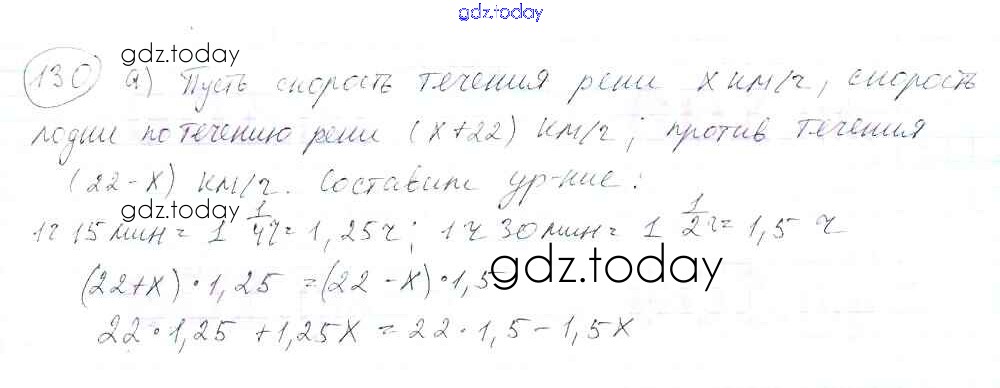 gdz.today
gdz.today
130 а) Пусть скорость течения реки x км/ч, скорость
лодки по течению реки (x+22) км/ч; против течения
(22-x) км/ч. Составим ур-ние:
gdz.today
1ч 15 мин = 1 1/4ч = 1,25ч; 1ч 30 мин = 1 1/2ч = 1,5 ч
gdz.today
(22+x)·1,25 = (22-x)·1,5
22·1,25 + 1,25x = 22·1,5 - 1,5x